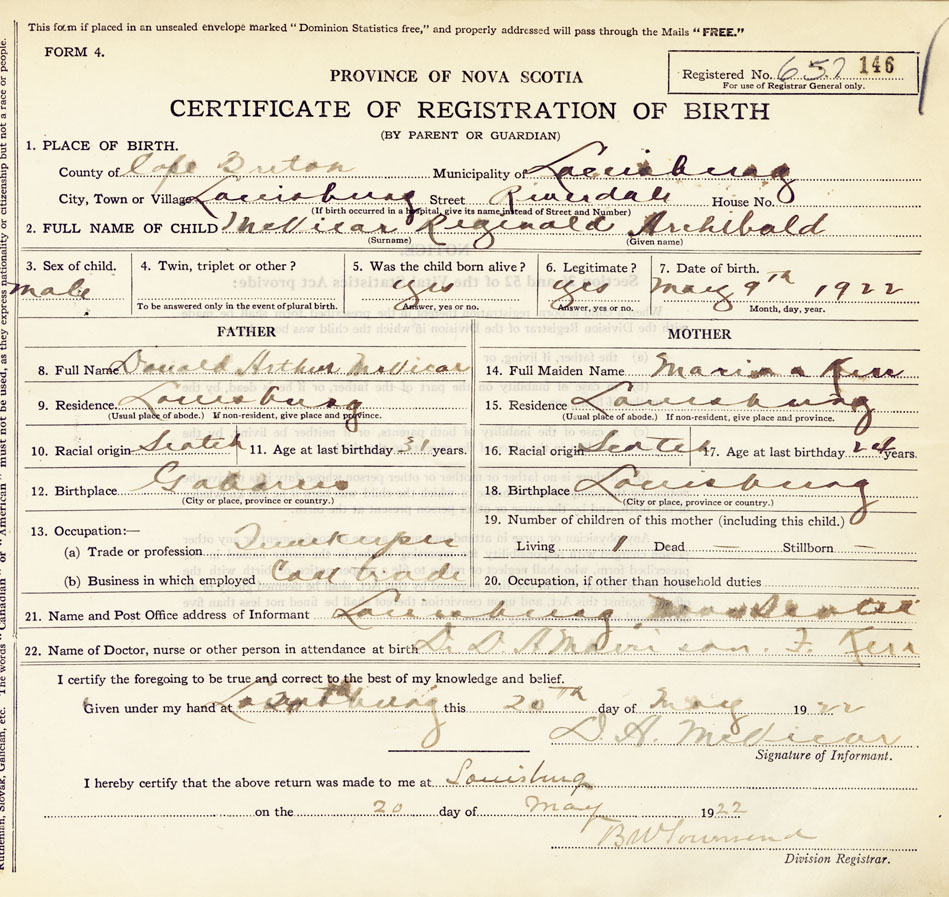 This form if placed in an unsealed envelope marked "Dominion Statistics free," and properly addressed will pass through the Mails "FREE."
FORM 4.
PROVINCE OF NOVA SCOTIA
Registered No. 652 146
For use of Registrar General only.
CERTIFICATE OF REGISTRATION OF BIRTH
(BY PARENT OR GUARDIAN)
1. PLACE OF BIRTH.
County of Cape Breton Municipality of Louisburg
City, Town or Village Louisburg Street Riverdale House No.
(If birth occurred in a hospital, give its name instead of Street and Number)
2. FULL NAME OF CHILD McVicar Reginald Archibald
(Surname) (Given name)
3. Sex of child. 4. Twin, triplet or other? 5. Was the child born alive? 6. Legitimate? 7. Date of birth.
male yes yes May 9th 1922
To be answered only in the event of plural birth. Answer, yes or no. Answer, yes or no. Month, day, year.
FATHER MOTHER
8. Full Name Donald Arthur McVicar 14. Full Maiden Name Marion Kerr
9. Residence Louisburg 15. Residence Louisburg
(Usual place of abode.) If non-resident, give place and province. (Usual place of abode.) If non-resident, give place and province.
10. Racial origin Scotch 11. Age at last birthday 31 years. 16. Racial origin Scotch 17. Age at last birthday 24 years.
12. Birthplace Gabarus 18. Birthplace Louisburg
(City or place, province or country.) (City or place, province or country.)
13. Occupation:— 19. Number of children of this mother (including this child.)
(a) Trade or profession Timekeeper Living 1 Dead — Stillborn —
(b) Business in which employed Coal trade 20. Occupation, if other than household duties
21. Name and Post Office address of Informant Louisburg Nova Scotia
22. Name of Doctor, nurse or other person in attendance at birth Dr D. A. F. Kerr
I certify the foregoing to be true and correct to the best of my knowledge and belief.
Given under my hand at Louisburg this 20th day of May 1922
D. A. McVicar
Signature of Informant.
I hereby certify that the above return was made to me at Louisburg
on the 20 day of May 1922
B W Townsend
Division Registrar.
Ruthenian, Slovak, Galician, etc. The words "Canadian" or "American" must not be used, as they express nationality or citizenship but not a race or people.